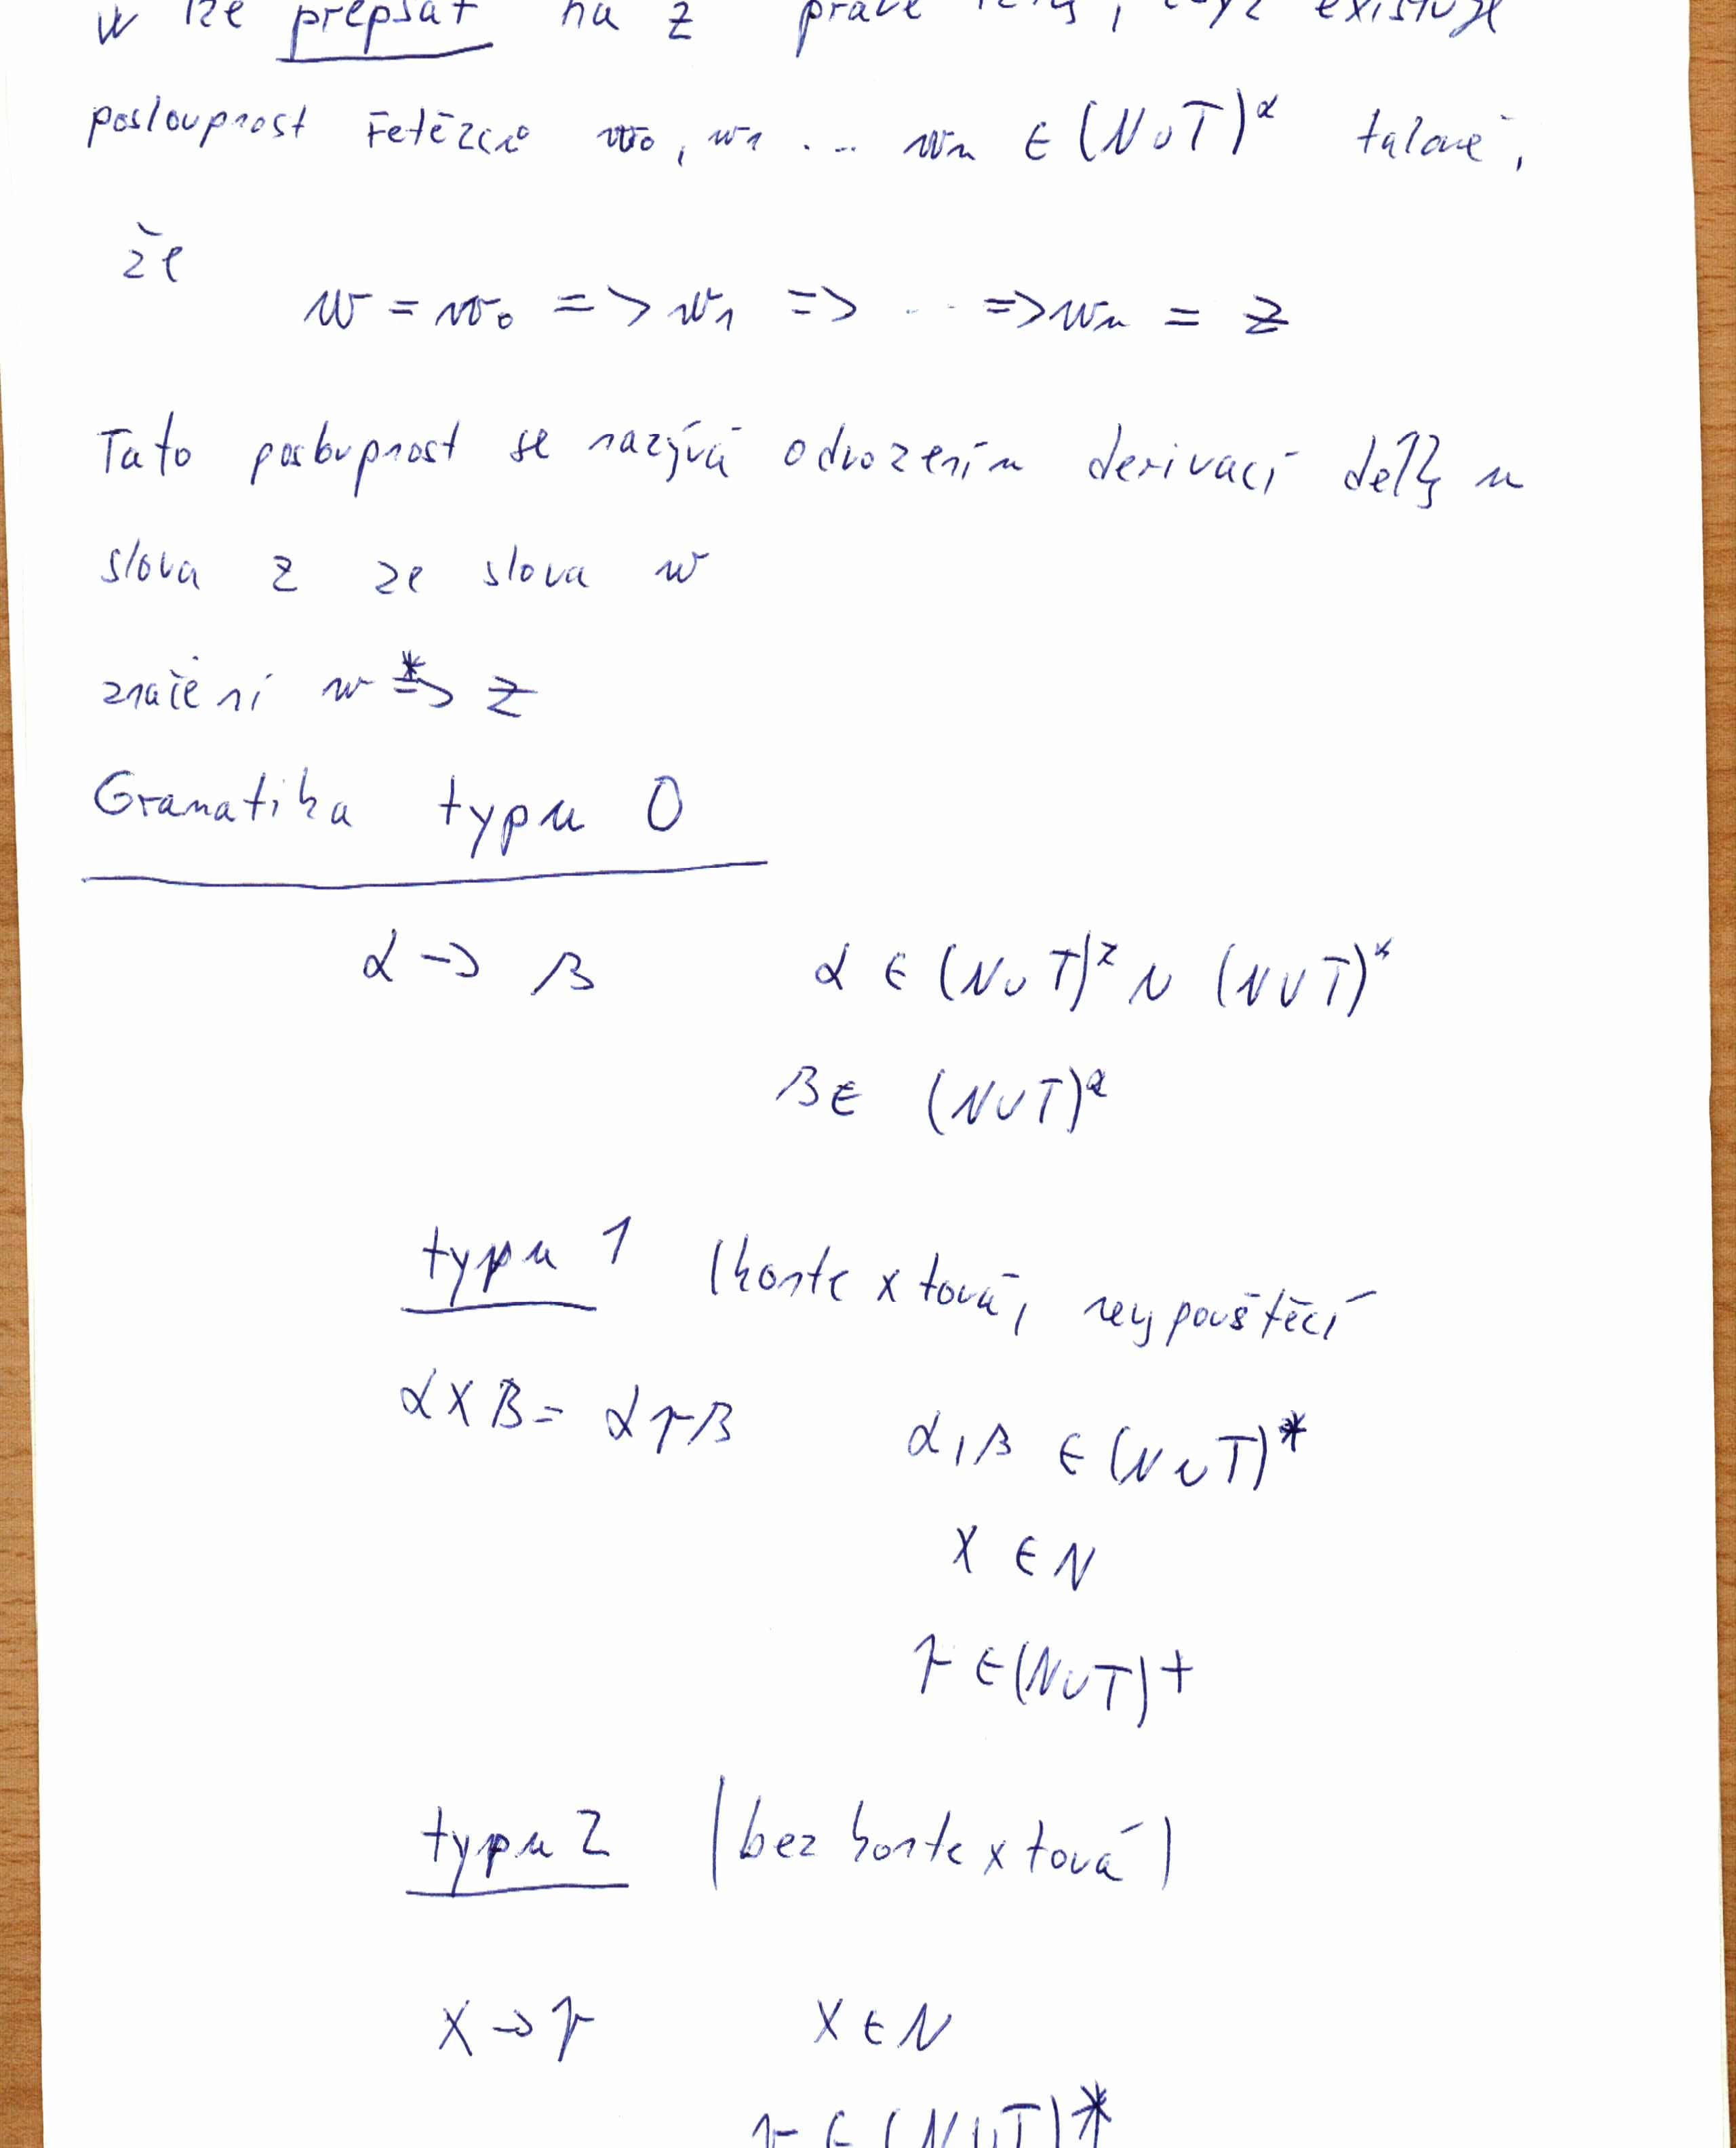 w lze přepsat na z právě tehdy, když existuje
posloupnost řetězců w₀, w₁ ... wₙ ∈ (N∪T)* takové,
že
w = w₀ => w₁ => ... => wₙ = z
Tato posloupnost se nazývá odvozením derivací délky n
slova z ze slova w
značení w *=> z
Gramatika typu 0
α -> β α ∈ (N∪T)* N (N∪T)*
β ∈ (N∪T)*
typu 1 (kontextová, nevypouštěcí
αXβ = αγβ α, β ∈ (N∪T)*
X ∈ N
γ ∈ (N∪T)+
typu 2 (bezkontextová)
X -> γ X ∈ N
γ ∈ (N∪T)*